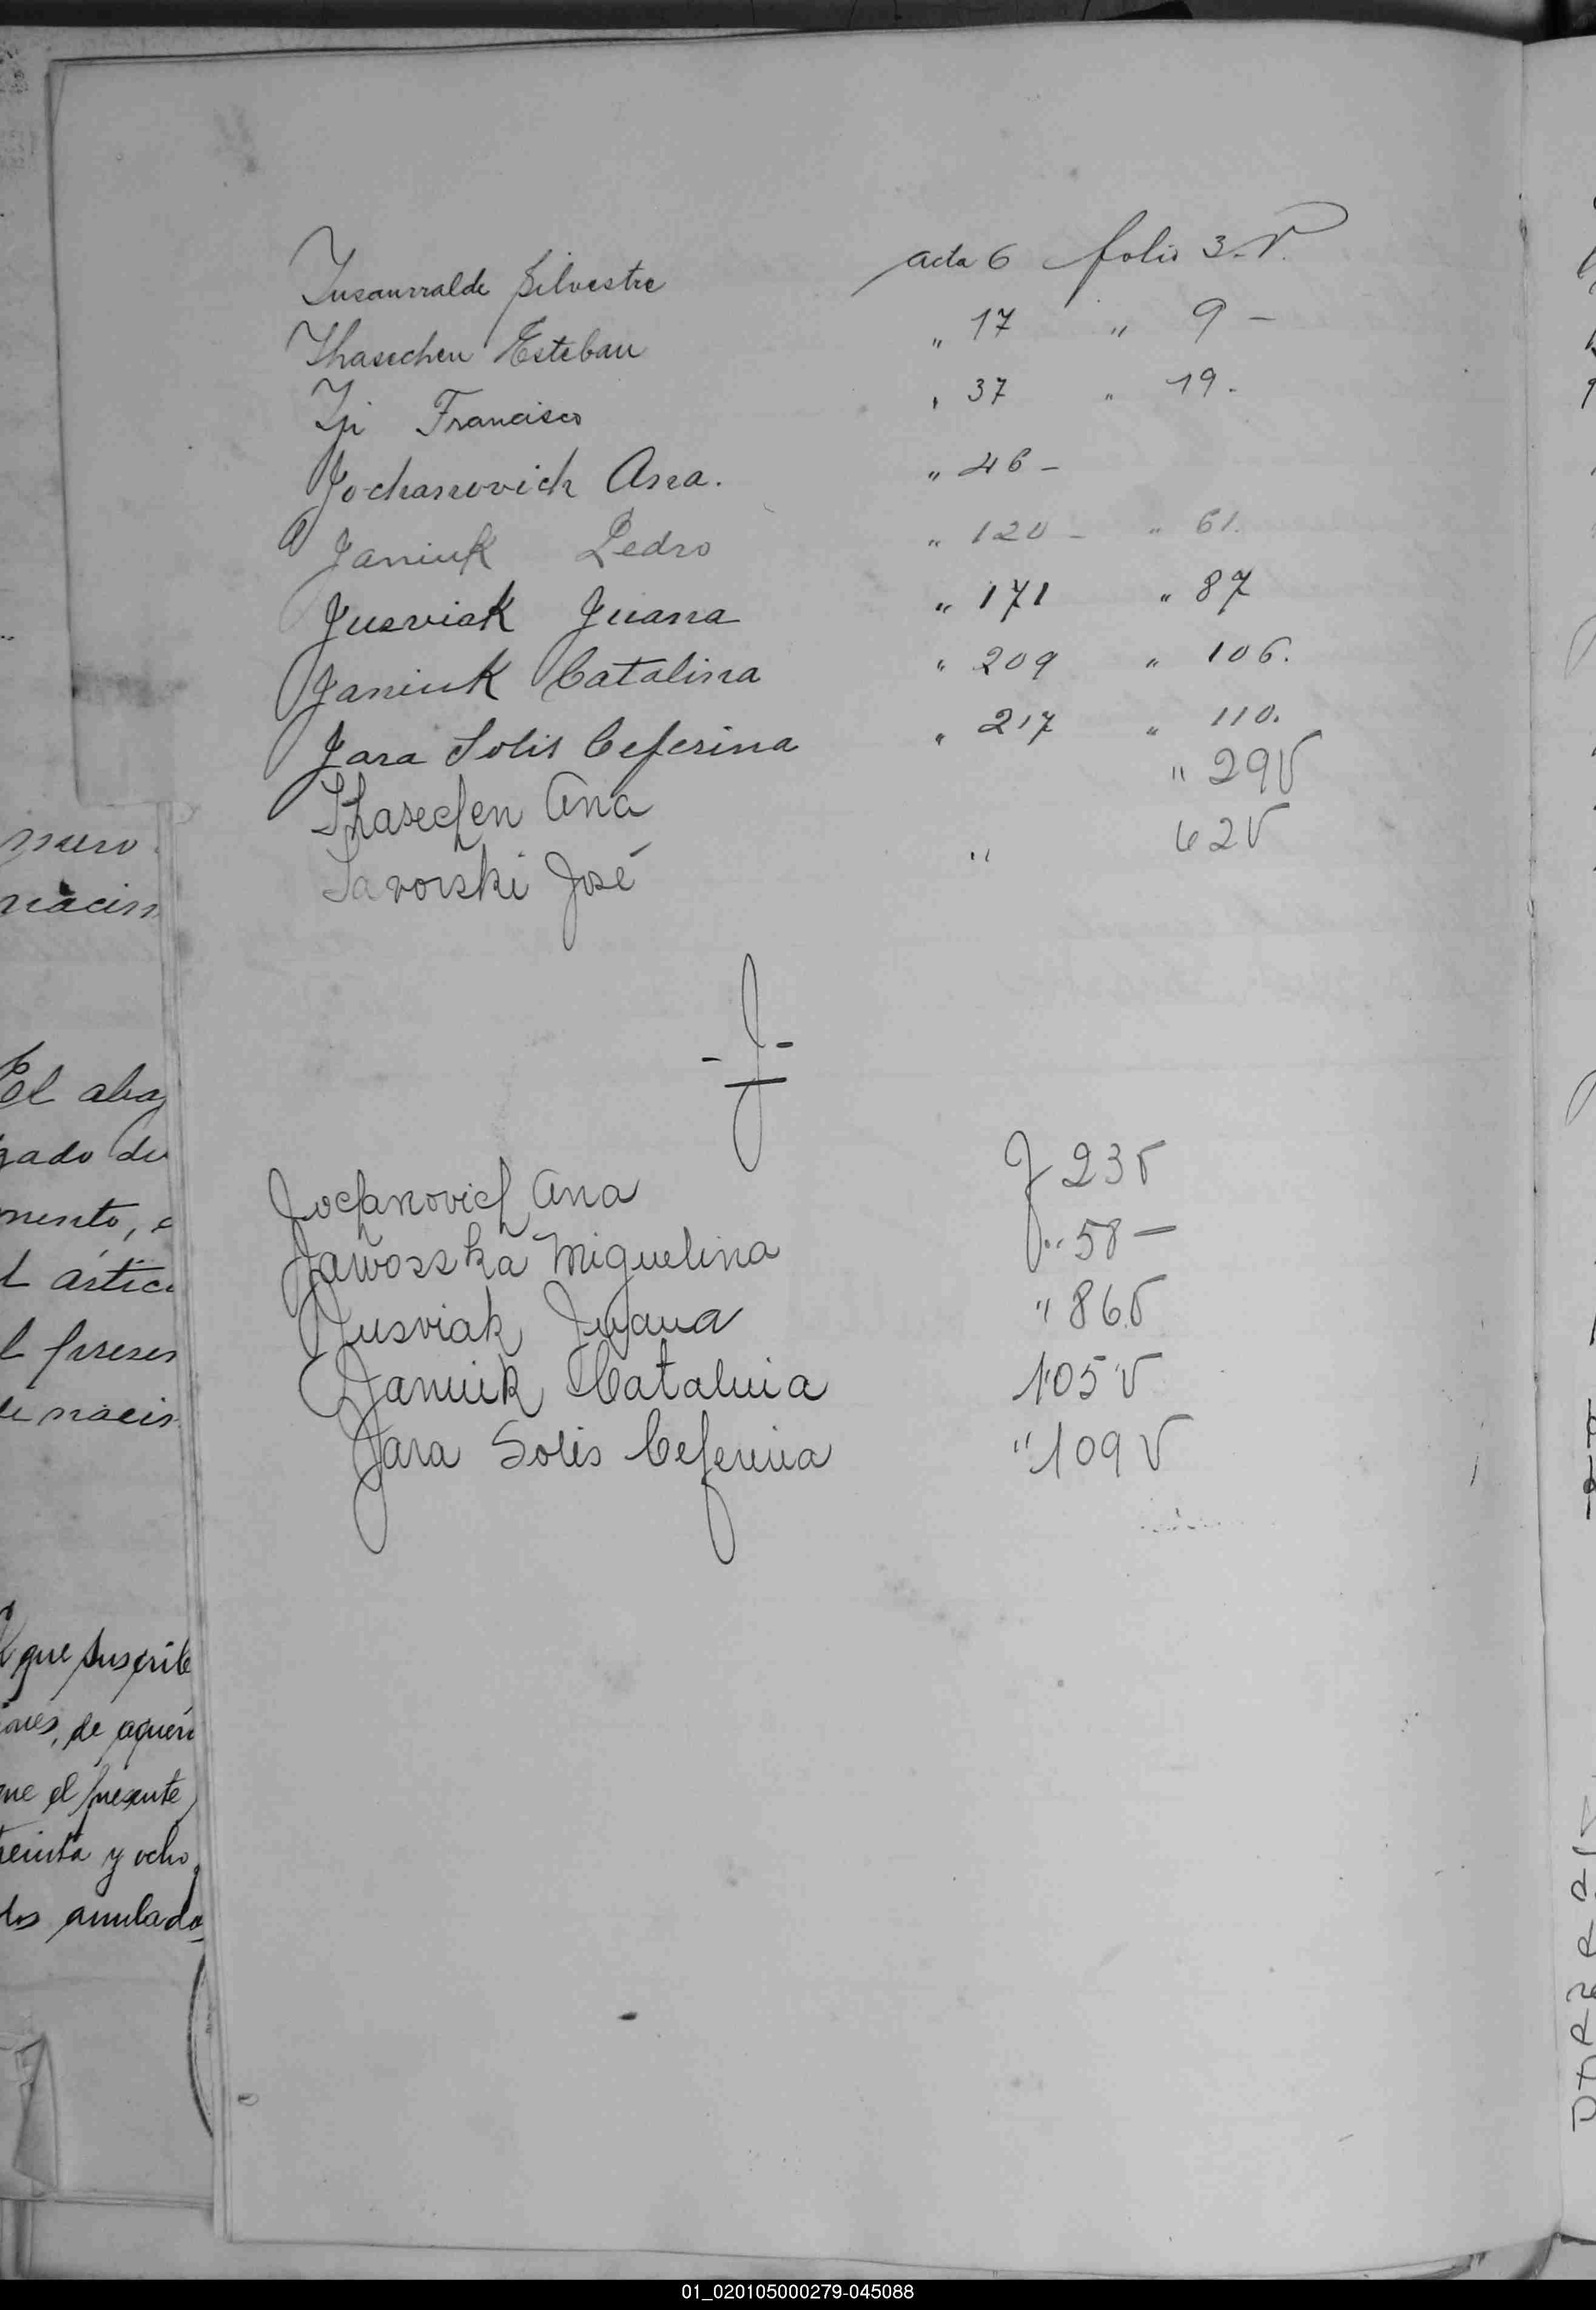 Insaurralde Silvestre acta 6 folio 3 V.
Ihasechen Esteban " 17 " 9 -
Ipi Francisco " 37 " 19.
Jochanovich Ana. " 46 -
Janiuk Pedro " 120 - " 61.
Jusviak Juana " 171 " 87
Janiuk Catalina " 209 " 106.
Jara Solis Ceferina " 217 " 110.
Ihasechen Ana " 29V
Iavorski José " 62V
- J -
Jochanovich Ana f 23V
Jawosska Miguelina f " 58 -
Jusviak Juana " 86V
Janiuk Catalina 105V
Jara Solis Ceferina " 109V
El aba
gado de
mento, e
l artic
l presen
de nacis
que suscribe
de
el presente
treinta y ocho
los anulado
01_020105000279-045088